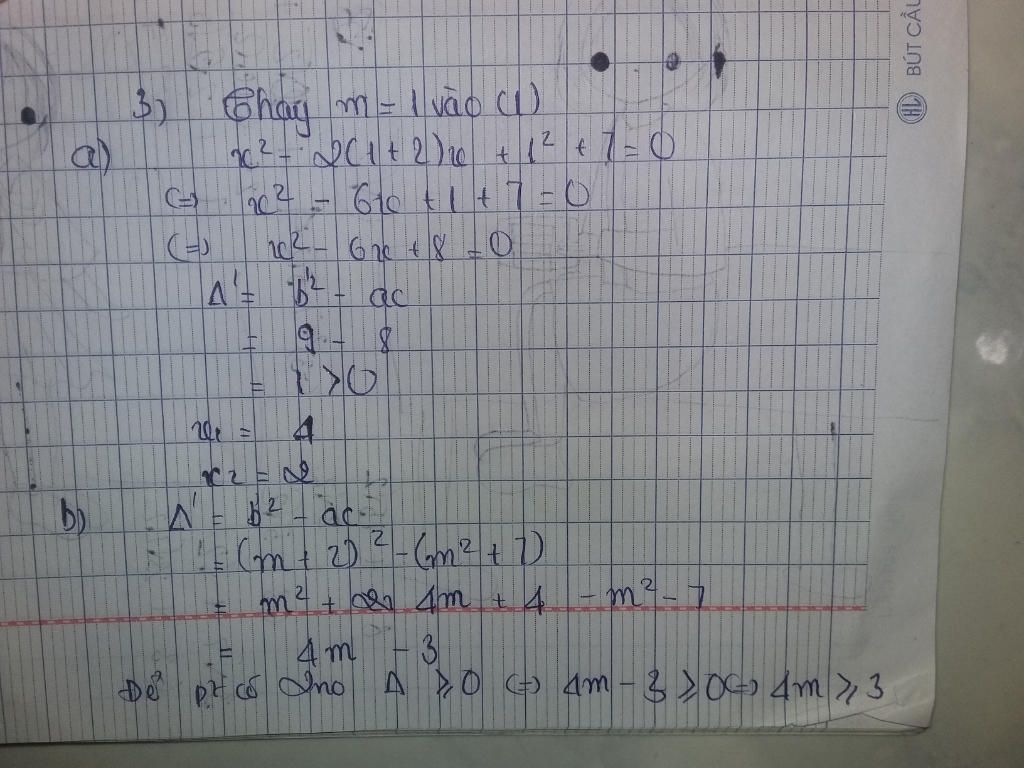 3) Thay m = 1 vào (1)
a) x² - 2(1+2)x + 1² + 7 = 0
(=) x² - 6x + 1 + 7 = 0
(=) x² - 6x + 8 = 0
Δ' = b'² - ac
= 9 - 8
= 1 > 0
x₁ = 4
x₂ = 2
b) Δ' = b'² - ac
= (m + 2)² - (m² + 7)
= m² + 4m + 4 - m² - 7
= 4m - 3
Để pt có 2no Δ ⩾ 0 (=) 4m - 3 ⩾ 0 (=) 4m ⩾ 3
BÚT CÂU